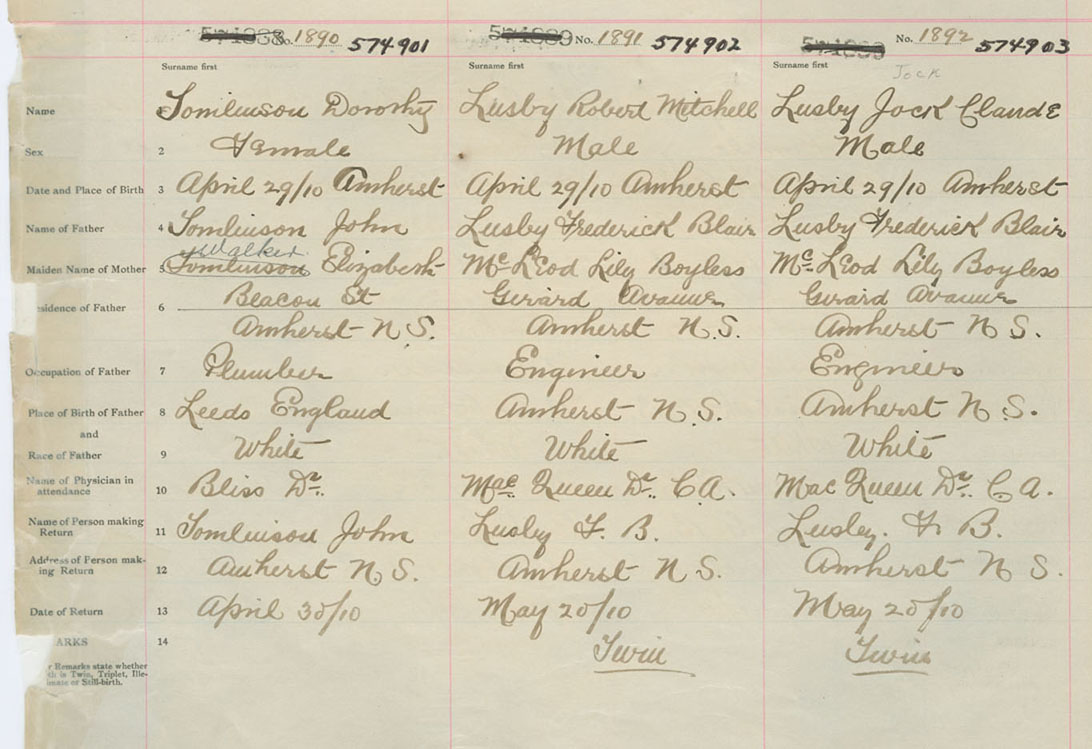 No. 1890 574901 No. 1891 574902 No. 1892 574903
Surname first Surname first Surname first
Jock
Name Tomlinson Dorothy Lusby Robert Mitchell Lusby Jock Claude
Sex 2 Female Male Male
Date and Place of Birth 3 April 29/10 Amherst April 29/10 Amherst April 29/10 Amherst
Name of Father 4 Tomlinson John Lusby Frederick Blair Lusby Frederick Blair
Walker
Maiden Name of Mother 5 Tomlinson Elizabeth McLeod Lily Boyless McLeod Lily Boyless
sidence of Father 6 Beacon St Gerard Avanue Gerard Avanue
Amherst N.S. Amherst N.S. Amherst N S.
Occupation of Father 7 Plumber Engineer Engineer
Place of Birth of Father 8 Leeds England Amherst N.S. Amherst N S.
and
Race of Father 9 White White White
Name of Physician in
attendance 10 Bliss Dr. Mac Queen Dr. C A. Mac Queen Dr. C. A.
Name of Person making
Return 11 Tomlinson John Lusby F. B. Lusby. F. B.
Address of Person mak-
ing Return 12 Amherst N, S. Amherst N S. Amherst N S.
Date of Return 13 April 30/10 May 20/10 May 20/10
ARKS 14
Twin Twin
r Remarks state whether
th is Twin, Triplet, Ille-
imate or Still-birth.